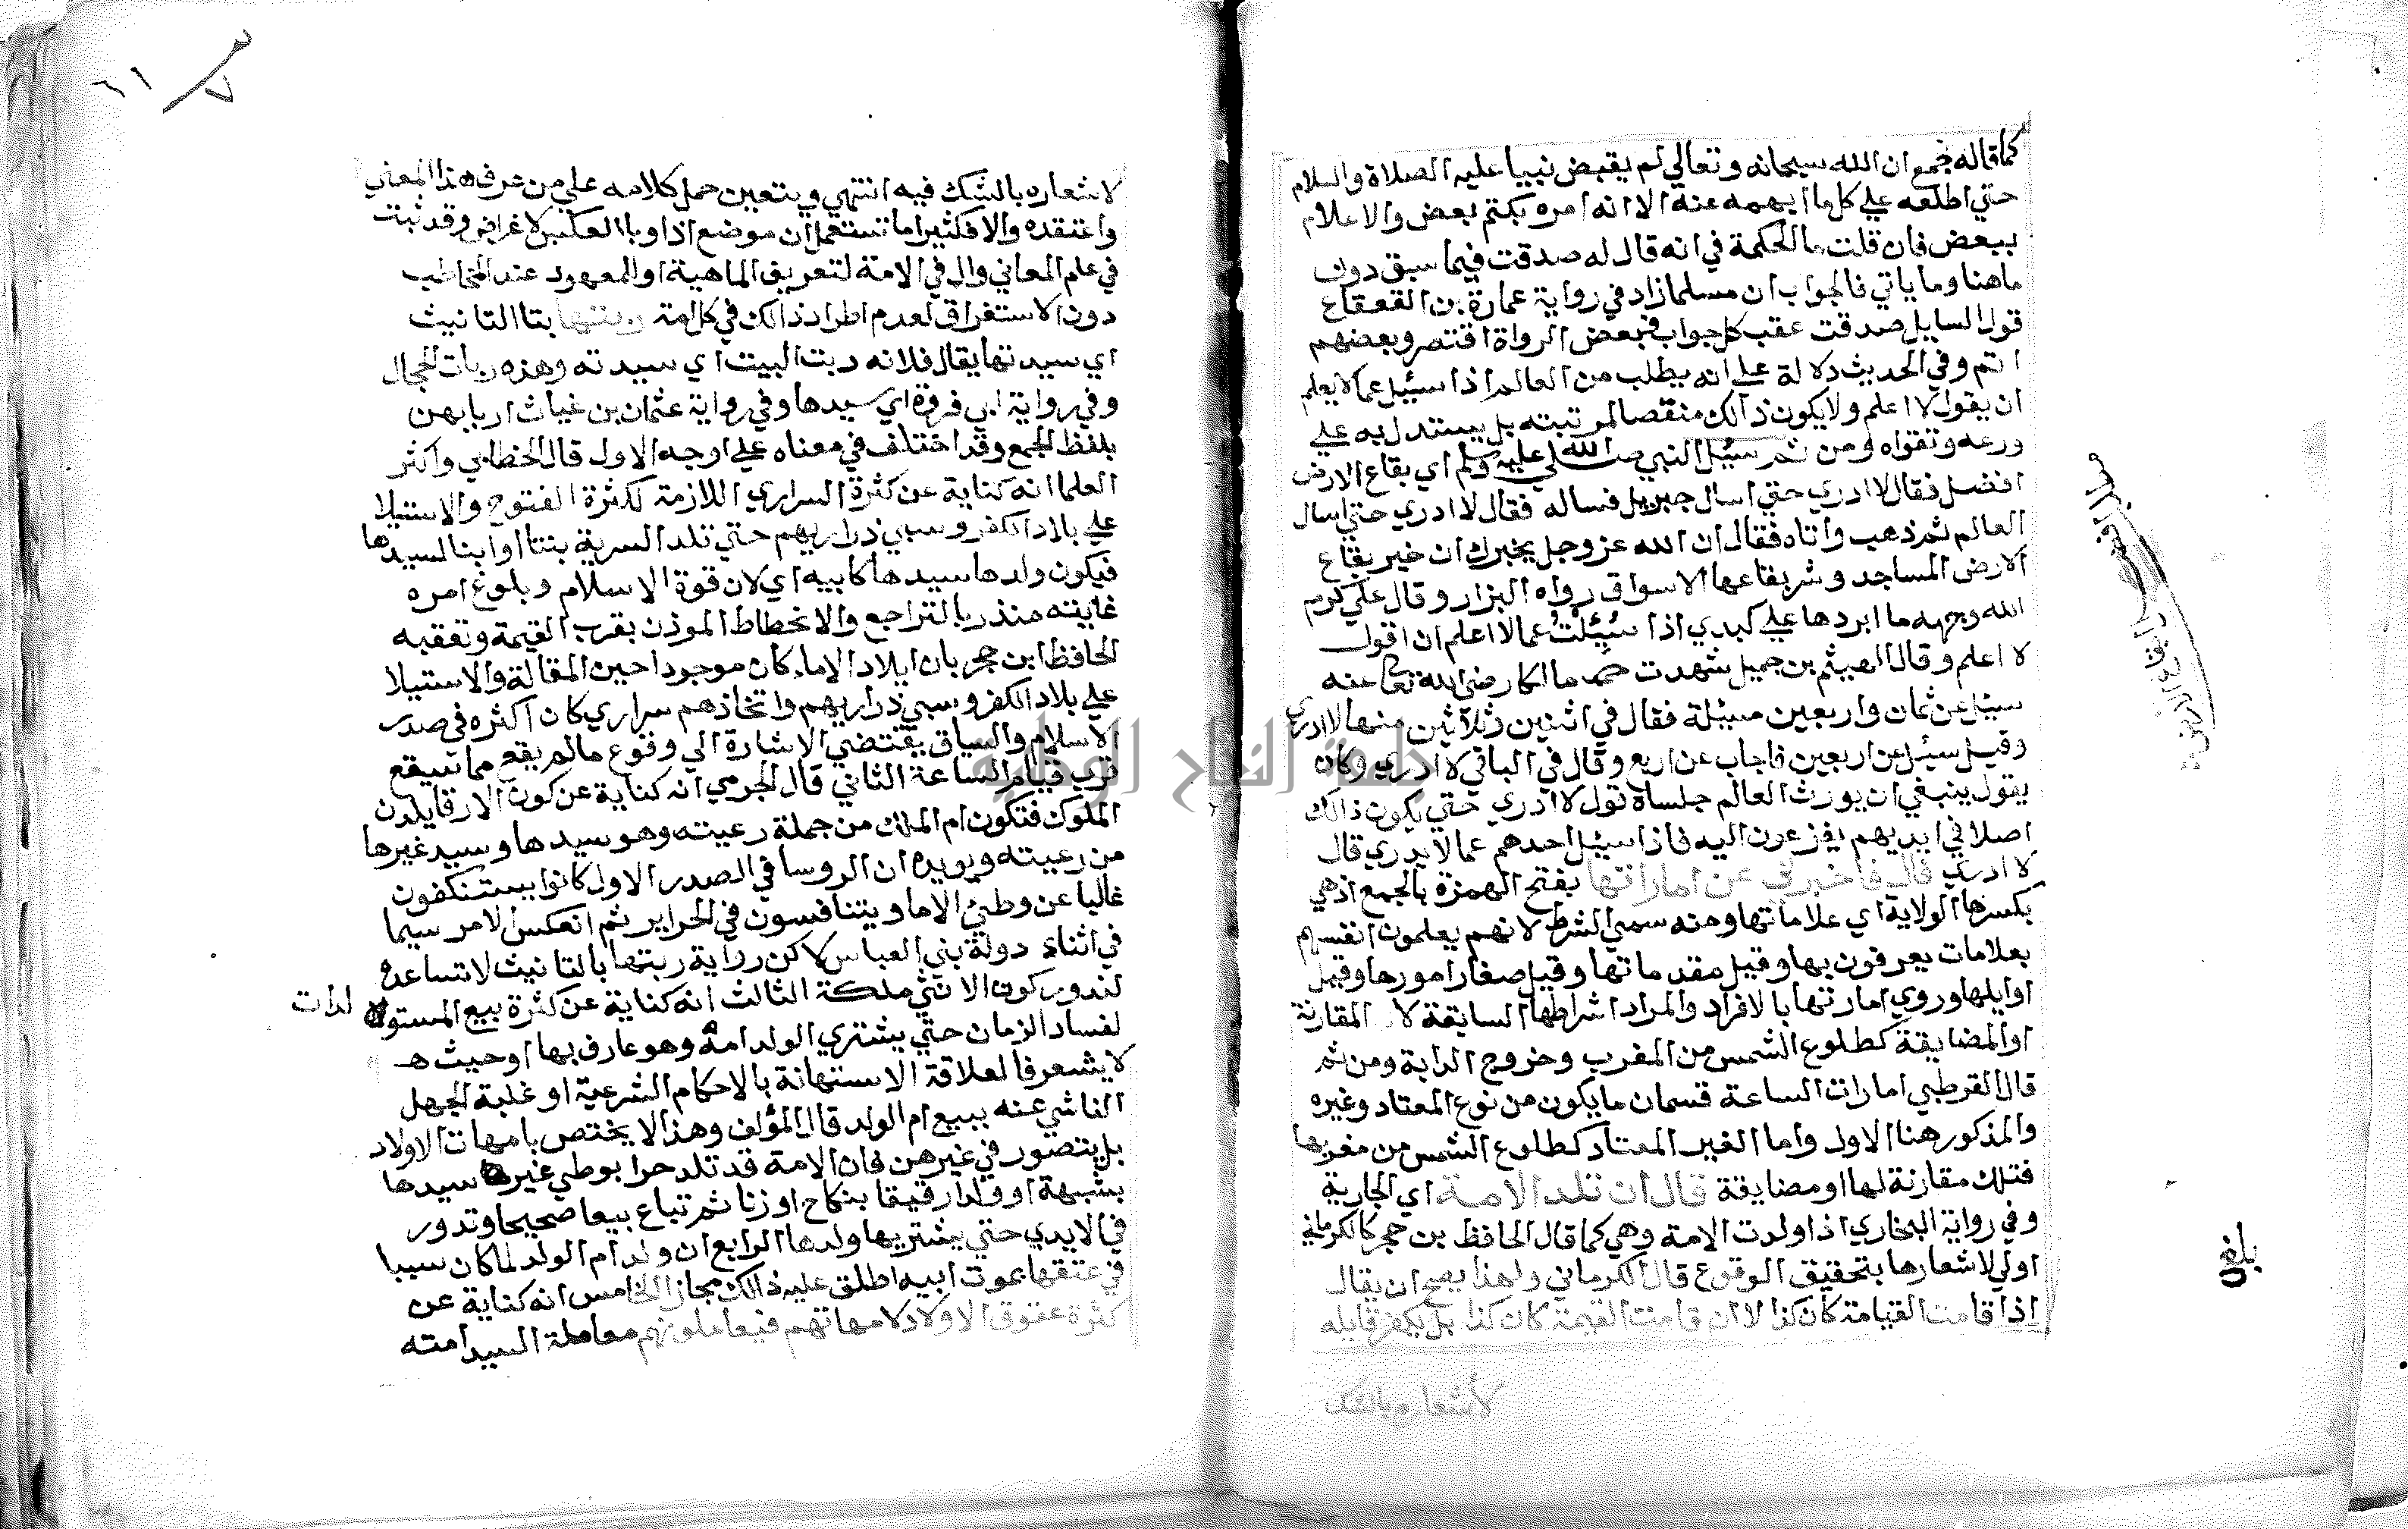 كما قاله جمع ان الله سبحانه وتعالي لم يقبض نبيا عليه الصلاة والسلام
حتي اطلعه علي كل ما ابهمه عنه الا انه امره بكتم بعض والاعلام
ببعض فان قلت ما الحكمة في انه قال له صدقت فيما سبق دون
ماهنا وما ياتي فالجواب ان مسلما زاد في رواية عمارة بن القعقاع
قول السايل صدقت عقب كل جواب فبعض الرواة اقتصر وبعضهم
اتم وفي الحديث دلالة علي انه يطلب من العالم اذا سئيل عما لا يعلم
ان يقول لا اعلم ولا يكون ذالك منقصا لمرتبته بل يستدل به علي
ورعه وتقواه ومن ثم سئيل النبي صلي الله عليه وسلم اي بقاع الارض
افضل فقال لا ادري حتي اسال جبريل فساله فقال لا ادري حتي اسال
العالم ثم ذهب واتاه فقال ان الله عز وجل يخبرك ان خير بقاع
الارض المساجد وشر بقاعها الاسواق رواه البزار وقال علي كرم
الله وجهه ما ابردها علي كبدي اذا سئيلت عما لا اعلم ان اقول
لا اعلم وقال الهيثم بن جميل شهدت مالكا رضي الله تعالي عنه
سئيل عن ثمان واربعين مسئلة فقال في اثنين وثلاثين منها لا ادري
وقيل سئيل عن اربعين فاجاب عن اربع وقال في الباقي لا ادري وكان
يقول ينبغي ان يورث العالم جلساه قول لا ادري حتي يكون ذالك
اصلا في ايديهم يفزعون اليه فاذا سئيل احدهم عما لا يدري قال
لا ادري قال فاخبرني عن اماراتها بفتح الهمزة بالجمع اذ هي
بكسرها الولاية اي علاماتها ومنه سمي الشرط لانهم يعلمون انفسهم
بعلامات يعرفون بها وقيل مقدماتها وقيل صغار امورها وقيل
اوايلها وروي امارتها بالافراد والمراد اشراطها السابقة لا المقارنة
او المضايقة كطلوع الشمس من المغرب وخروج الدابة ومن ثم
قال القرطبي امارات الساعة قسمان ما يكون من نوع المعتاد وغيره
والمذكور هنا الاول واما الغير المعتاد كطلوع الشمس من مغربها
فتلك مقارنة لها او مضايقة قال ان تلد الامة اي الجارية
وفي رواية البخاري اذا ولدت الامة وهي كما قال الحافظ بن حجر كالكرماني
اولي لاشعارها بتحقيق الوقوع قال الكرماني ولهذا يصح ان يقال
اذا قامت القيامة كان كذا لا ان قامت القيمة كان كذا بل يكفر قايله
لاشعاره بالشك
بلغ
لاشعاره بالشك فيه انتهي ويتعين حمل كلامه علي من عرف هذا المعني
واعتقده والا فكثيرا ما تستعمل ان موضع اذا وبالعكس لاغراض وقد ثبت
في علم المعاني وال في الامة لتعريف الماهية او المعهود عند المخاطب
دون الاستغراق لعدم اطراد ذالك في كل امة ربتها بتا التانيث
اي سيدتها يقال فلانه ربت البيت اي سيدته وهذه ربات الحجال
وفي رواية ابي فروة اي سيدها وفي رواية عثمان بن غياث اربابهن
بلفظ الجمع وقد اختلف في معناه علي اوجه الاول قال الخطابي واكثر
العلما انه كناية عن كثرة السراري اللازمة لكثرة الفتوح والاستيلا
علي بلاد الكفر وسبي ذراريهم حتي تلد السرية بنتا او ابنا لسيدها
فيكون ولدها سيدها كابيه اي لان قوة الاسلام وبلوغ امره
غايته منذر بالتراجع والانحطاط الموذن بقرب القيمة وتعقبه
الحافظ ابن حجر بان ايلاد الاما كان موجودا حين المقالة والاستيلا
علي بلاد الكفر وسبي ذراريهم واتخاذهم سراري كان اكثره في صدر
الاسلام والسياق يقتضي الاشارة الي وقوع ما لم يقع مما سيقع
قرب قيام الساعة الثاني قال الجرمي انه كناية عن كون الارقا يلدن
الملوك فتكون ام الملك من جملة رعيته وهو سيدها وسيد غيرها
من رعيته ويويده ان الروسا في الصدر الاول كانوا يستنكفون
غالبا عن وطئ الاما ويتنافسون في الحراير ثم انعكس الامر سيما
في اثناء دولة بني العباس لاكن رواية ربتها بالتانيث لا تساعده
لندور كون الانثي ملكة الثالث انه كناية عن كثرة بيع المستولدات
لفساد الزمان حتي يشتري الولد امه وهو عارف بها او حيث
لا يشعر فالعلاقة الاستهانة بالاحكام الشرعية او غلبة الجهل
الناشي عنه ببيع ام الولد قال المؤلف وهذا لا يختص بامهات الاولاد
بل يتصور في غيرهن فان الامة قد تلد حرا بوطي غير سيدها
بشبهة او ولدا رقيقا بنكاح او زنا ثم تباع بيعا صحيحا وتدور
في الايدي حتي يشتريها ولدها الرابع ان ولد ام الولد لما كان سببا
في عتقها بموت ابيه اطلق عليه ذالك مجاز الخامس انه كناية عن
كثرة عقوق الاولاد لامهاتهم فيعاملونهم معاملة السيد امته